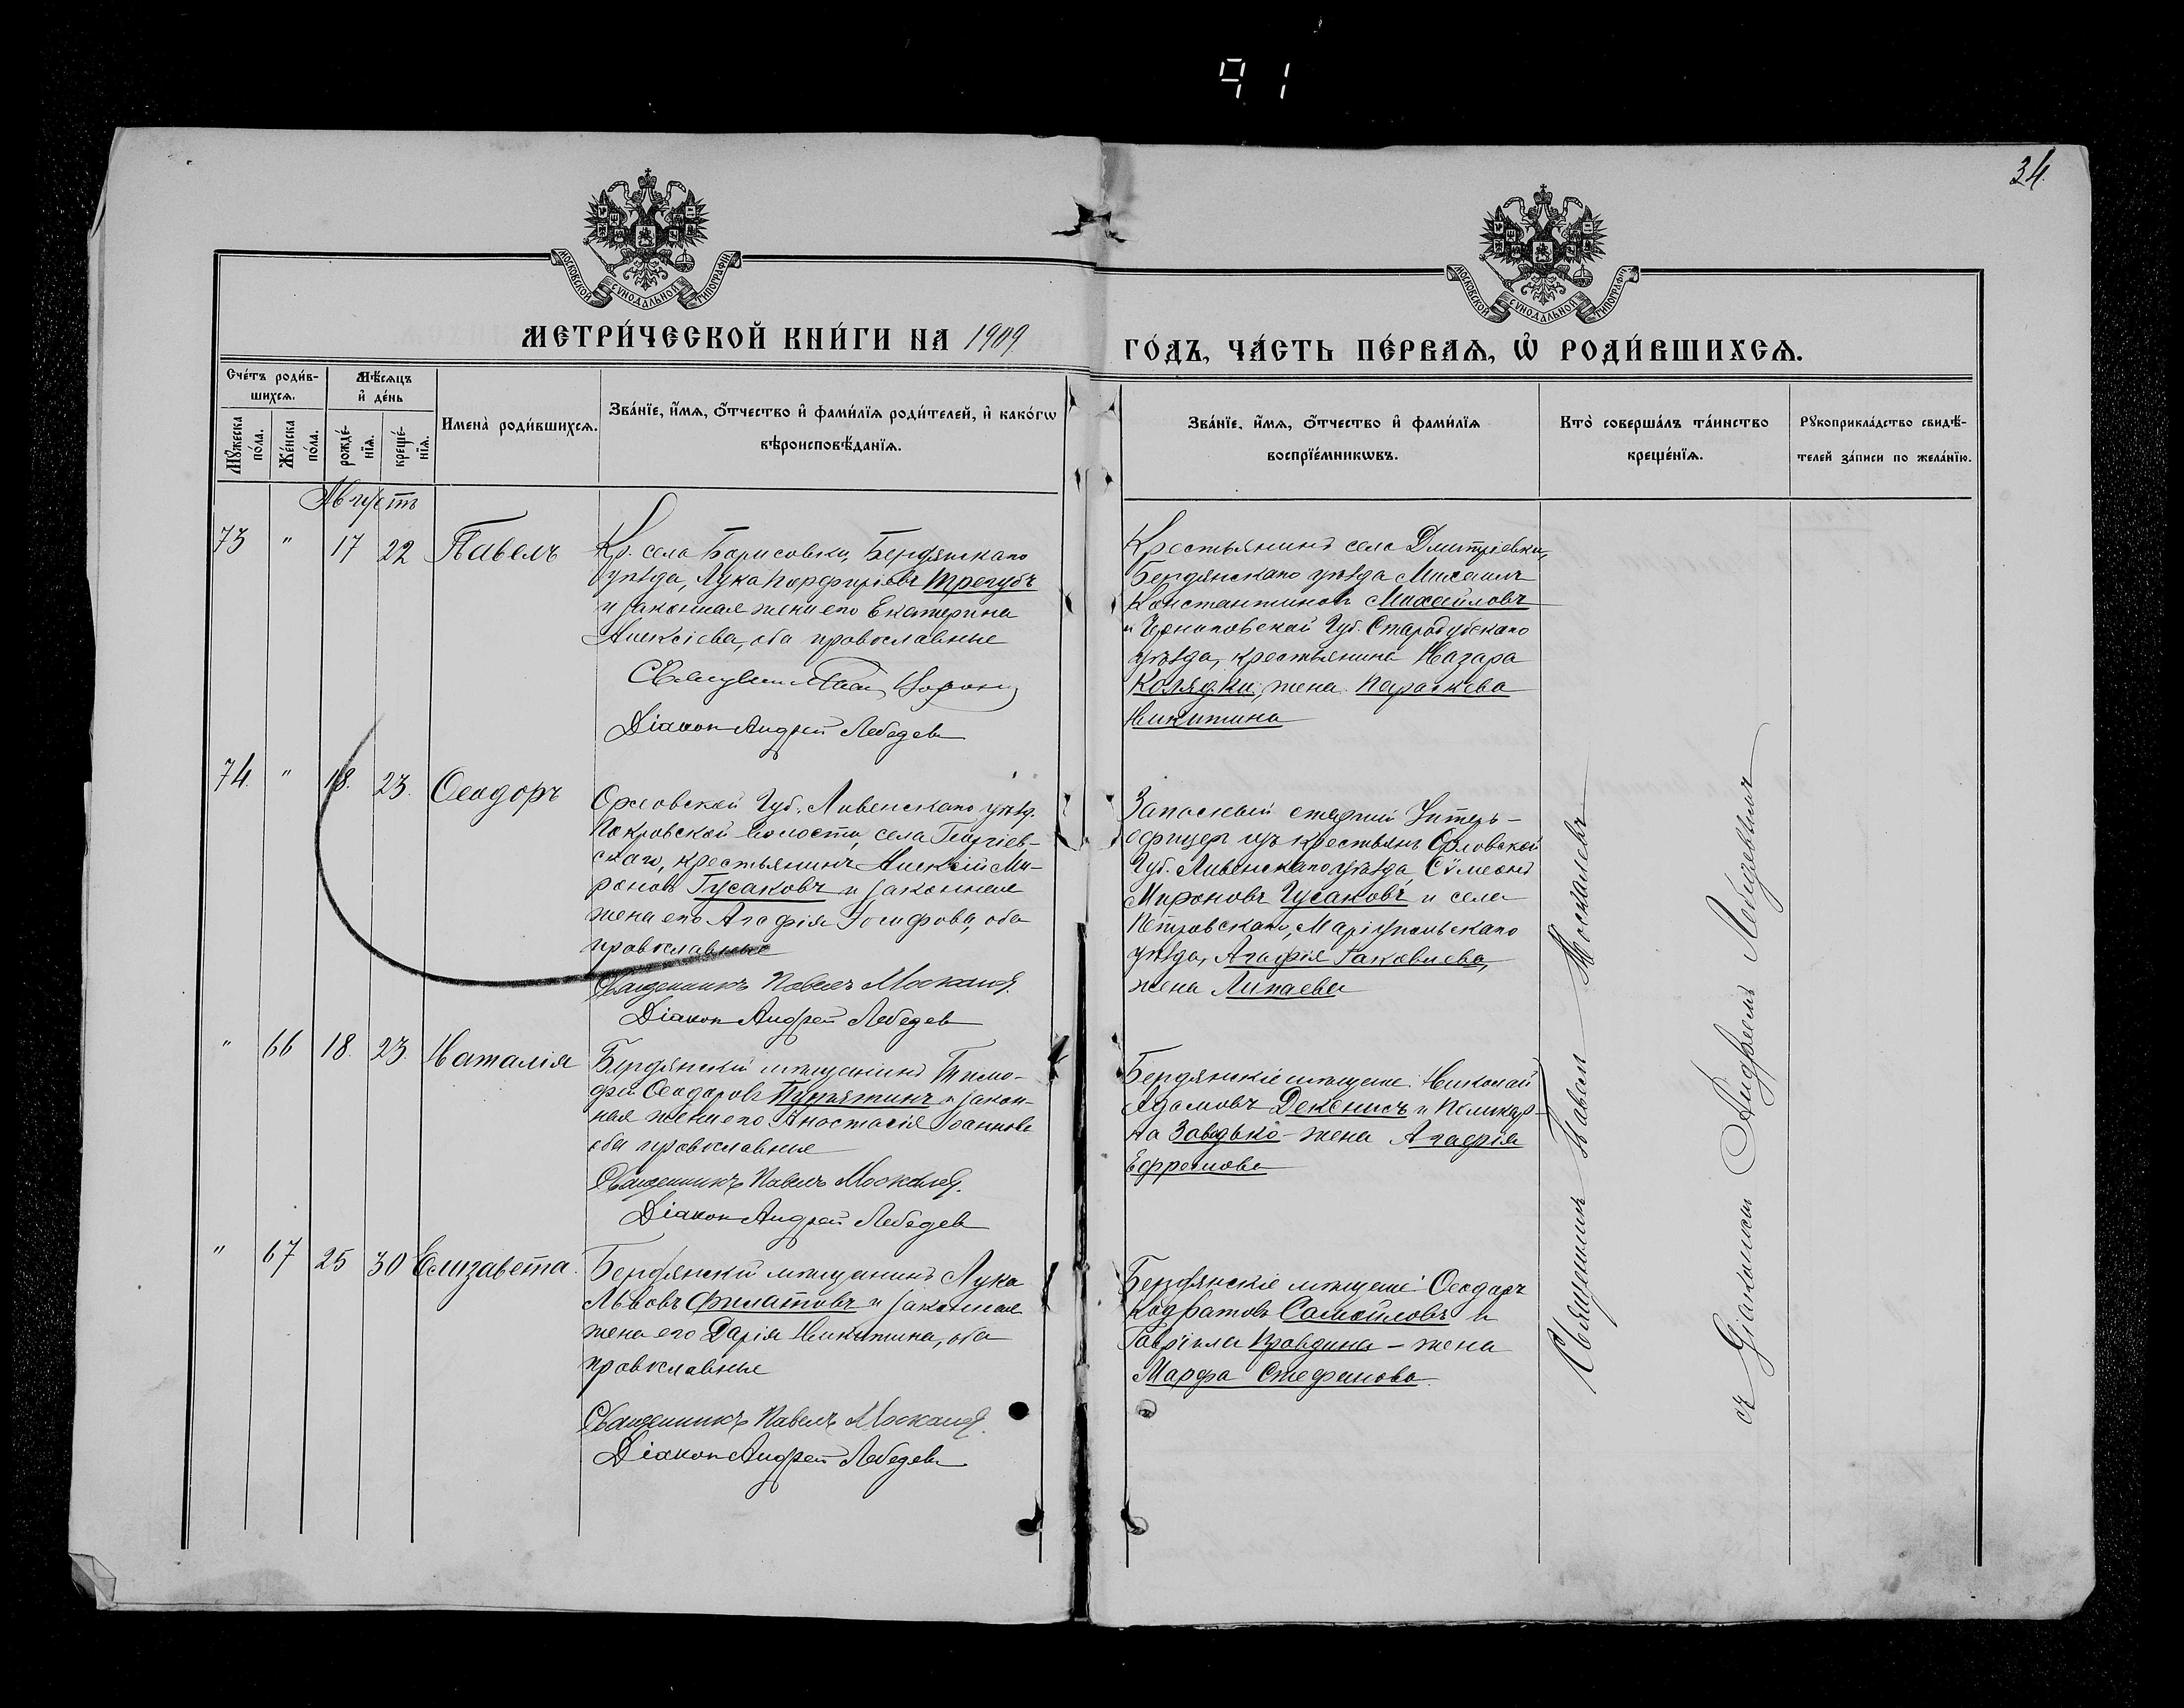 91
34.
МОСКОВСКОЙ СѴНОДАЛЬНОЙ ТИПОГРАФІИ
МОСКОВСКОЙ СѴНОДАЛЬНОЙ ТИПОГРАФІИ
МЕТРИ́ЧЕСКОЙ КНИ́ГИ НА 1909
ГО́ДЪ, ЧА́СТЬ ПЕ́РВАѦ, Ѡ РОДИ́ВШИХСѦ.
Сче́тъ роди́в-
шихсѧ.
Мꙋ́жеска
по́ла.
Же́нска
по́ла.
Мѣ́сѧцъ
и҆ де́нь
рожде́-
нїѧ.
креще́-
нїѧ.
Имена̀ роди́вшихсѧ.
Зва́нїе, и҆́мѧ, ѻ҆́тчество и҆ фами́лїѧ роди́телей, и҆ како́гѡ
вѣроисповѣ́данїѧ.
Зва́нїе, и҆́мѧ, ѻ҆́тчество и҆ фами́лїѧ
воспрїе́мникѡвъ.
Кто̀ соверша́лъ та́инство
креще́нїѧ.
Рꙋкоприкла́дство свидѣ́-
телей за́писи по жела́нїю.
Августъ
73 " 17 22 Павелъ
Кр. села Борисовки, Бердянскаго
уѣзда, Лука Порфиріовъ Трегубъ
и законная жена его Екатерина
Алексіева, оба православные
Діакон Андрей Лебедев
Крестьянинъ села Дмитріевки,
Бердянскаго уѣзда Михаилъ
Константиновъ Михайловъ
и Черниговской Губ. Стародубскаго
уѣзда, крестьянина Назара
Колядки, жена Параскева
Никитина
74. " 18. 23. Ѳеодоръ
Орловской Губ. Ливенскаго уѣзд.
Покровской волости, села Георгіев-
скаго, крестьянинъ Алексій Ми-
роновъ Гусаковъ и законная
жена его Агафія Іосифова, оба
православные
Священникъ Павелъ Москалев.
Діакон Андрей Лебедев
Запасный старшій Унтеръ-
офицеръ изъ крестьянъ Орловской
Губ. Ливенскаго уѣзда, Сѵмеонъ
Мироновъ Гусаковъ и села
Петровскаго, Маріупольскаго
уѣзда, Агафія Іаковлева,
жена Липаева
" 66 18. 23. Наталія
Бердянскій мѣщанинъ Тимо-
фей Ѳеодоровъ Путятинъ и закон-
ная жена его Анастасія Іоаннова
оба православные
Священникъ Павелъ Москалев.
Діакон Андрей Лебедев
Бердянскіе мѣщане: Николай
Адамовъ Декенисъ и Поликар-
па Заводько - жена Агафія
Ефремова
" 67 25 30 Елизавета.
Бердянскій мѣщанинъ Лука
Львовъ Филатовъ и законная
жена его Дарія Никитина, оба
православные
Священникъ Павелъ Москалев.
Діакон Андрей Лебедев
Бердянскіе мѣщане: Ѳеодоръ
Кодратовъ Самойловъ и
Гавріила Правдина - жена
Марфа Стефанова.
Священникъ Павелъ Москалевъ
съ Діакономъ Андреемъ Лебедевымъ